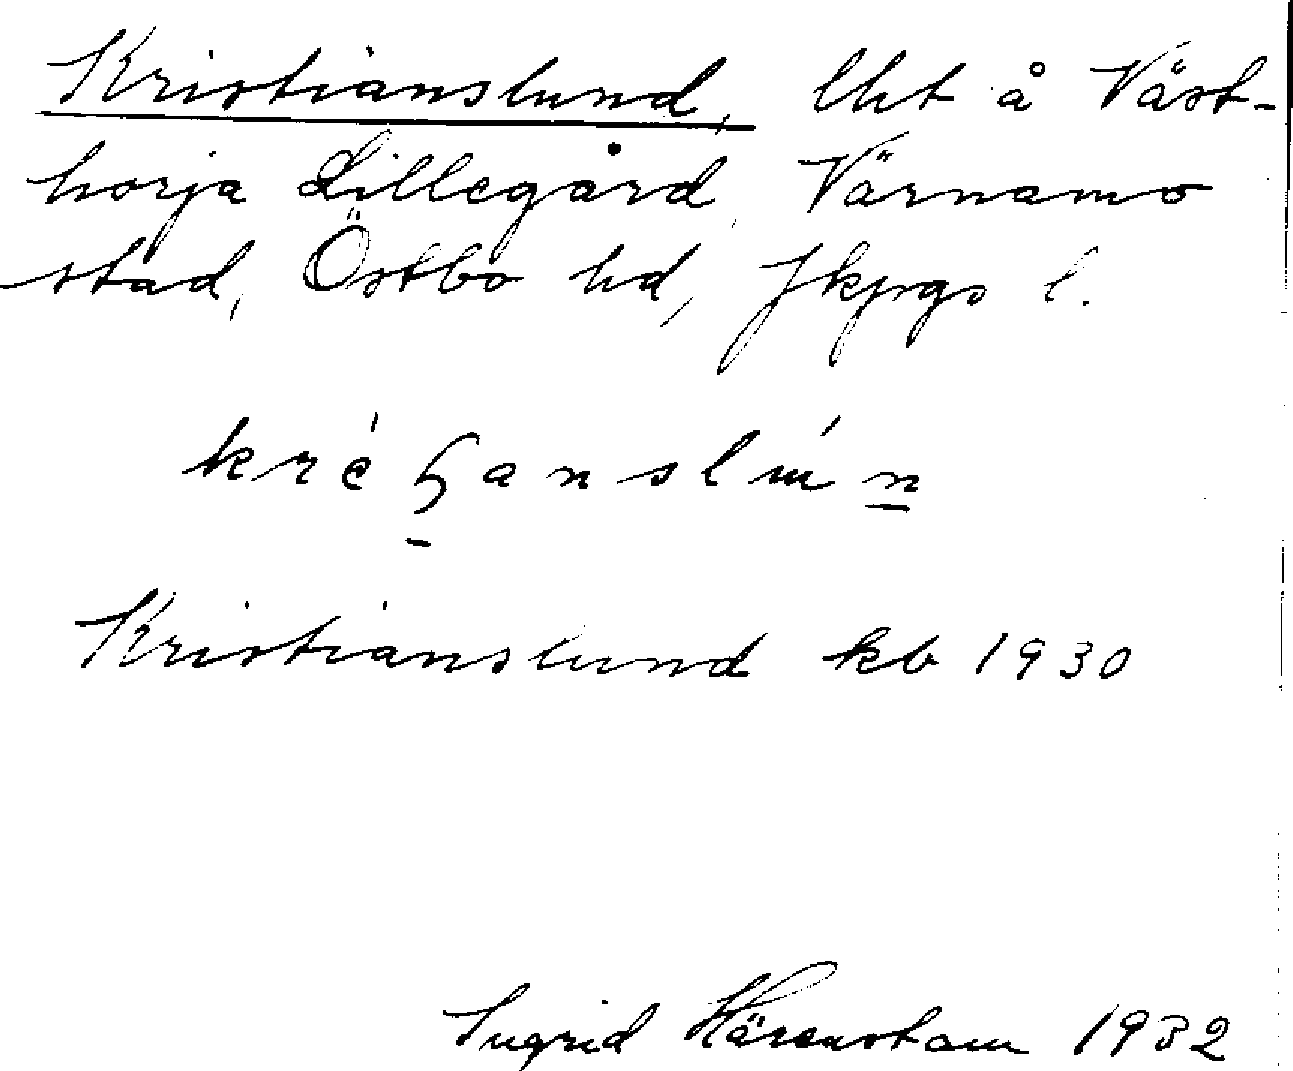 Kristianslund, lht å Väst-
horja Lillegård, Värnamo
stad, Östbo hd, Jkpgs l.
Kristianslund kb 1930
Ingrid Härenstam 1932